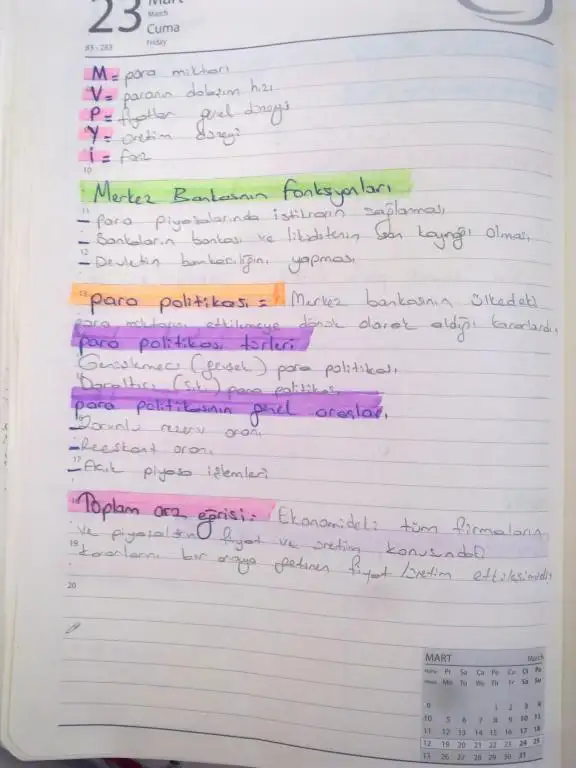 23 Mart
March
Cuma
Friday
83 - 283
M = para miktarı
V = paranın dolaşım hızı
P = fiyatlar genel düzeyi
Y = üretim düzeyi
i = faiz
10
Merkez Bankasının fonksyonları
11
- Para piyasalarında istikrarın sağlanması
- Bankaların bankası ve likiditenin son kaynağı olması
12
- Devletin bankacılığını yapması
Para politikası = Merkez bankasının ülkedeki
para miktarını etkilemeye dönük olarak aldığı kararlardır
para politikası türleri
Genişlemeci (gevşek) para politikası
Daraltıcı (sıkı) para politikası
para politikasının genel araçları
- Zorunlu rezerv oranı
- Reeskont oranı
17
- Açık piyasa işlemleri
18
Toplam arz eğrisi: Ekonomideki tüm firmaların
ve piyasaların fiyat ve üretim konusundaki
19
kararlarını bir araya getiren fiyat / üretim etkileşimidir
20
MART March
Pt Sa Ça Pe Cu Ct Pa
Mo Tu We Th Fr Sa Su
9 1 2 3 4
10 5 6 7 8 9 10 11
11 12 13 14 15 16 17 18
12 19 20 21 22 23 24 25
13 26 27 28 29 30 31